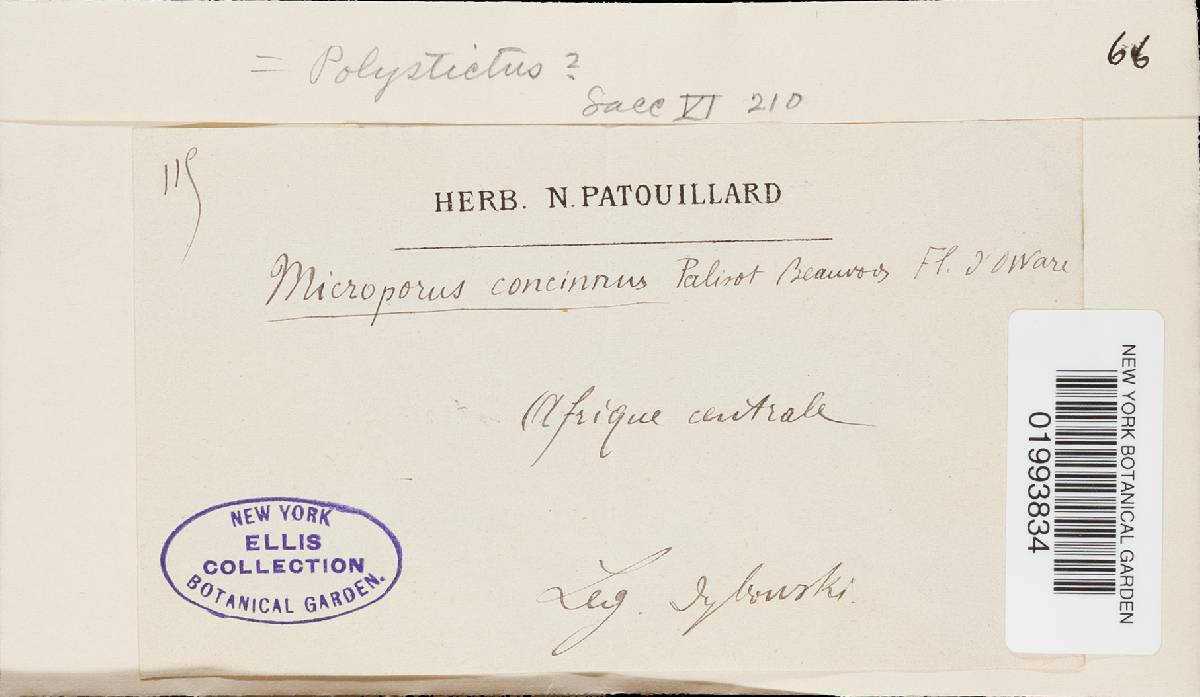 66
= Polystictus ?
Sacc VI 210
115
HERB. N. PATOUILLARD
Microporus concinnus Palisot Beauvois Fl. d'Oware
Afrique centrale
Leg. Dybowski.
NEW YORK
ELLIS
COLLECTION
BOTANICAL GARDEN.
NEW YORK BOTANICAL GARDEN
01993834